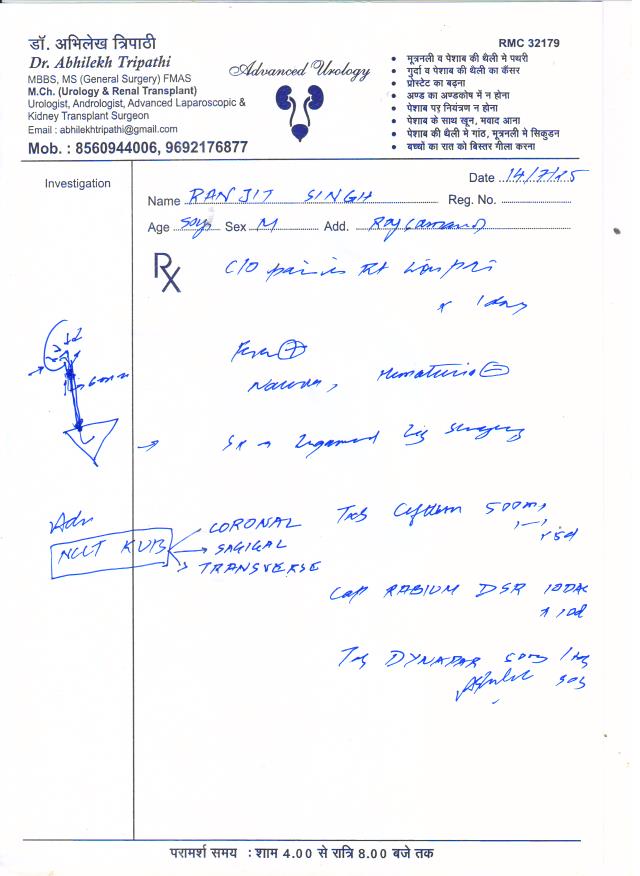 डॉ. अभिलेख त्रिपाठी
Dr. Abhilekh Tripathi
MBBS, MS (General Surgery) FMAS
M.Ch. (Urology & Renal Transplant)
Urologist, Andrologist, Advanced Laparoscopic &
Kidney Transplant Surgeon
Email : abhilekhtripathi@gmail.com
Mob. : 8560944006, 9692176877
Advanced Urology
RMC 32179
• मूत्रनली व पेशाब की थैली मे पथरी
• गुर्दा व पेशाब की थैली का कैंसर
• प्रोस्टेट का बढ़ना
• अण्ड का अण्डकोष में न होना
• पेशाब पर नियंत्रण न होना
• पेशाब के साथ खून, मवाद आना
• पेशाब की थैली मे गांठ, मूत्रनली मे सिकुडन
• बच्चों का रात को बिस्तर गीला करना
Investigation
Date 14/7/25
Name RANJIT SINGH Reg. No.
Age 50y Sex M Add.
Rx
C/O pain in Rt
x 1 day
Fever +
Nausea, Hematuria -
6mm
Adv
NCCT KUB
CORONAL
SAGIGAL
TRANSVERSE
Tab 500mg
x 5d
Cap RABIUM DSR
x 10d
Tab DYNAPAR 500mg 1tab
SOS
परामर्श समय : शाम 4.00 से रात्रि 8.00 बजे तक